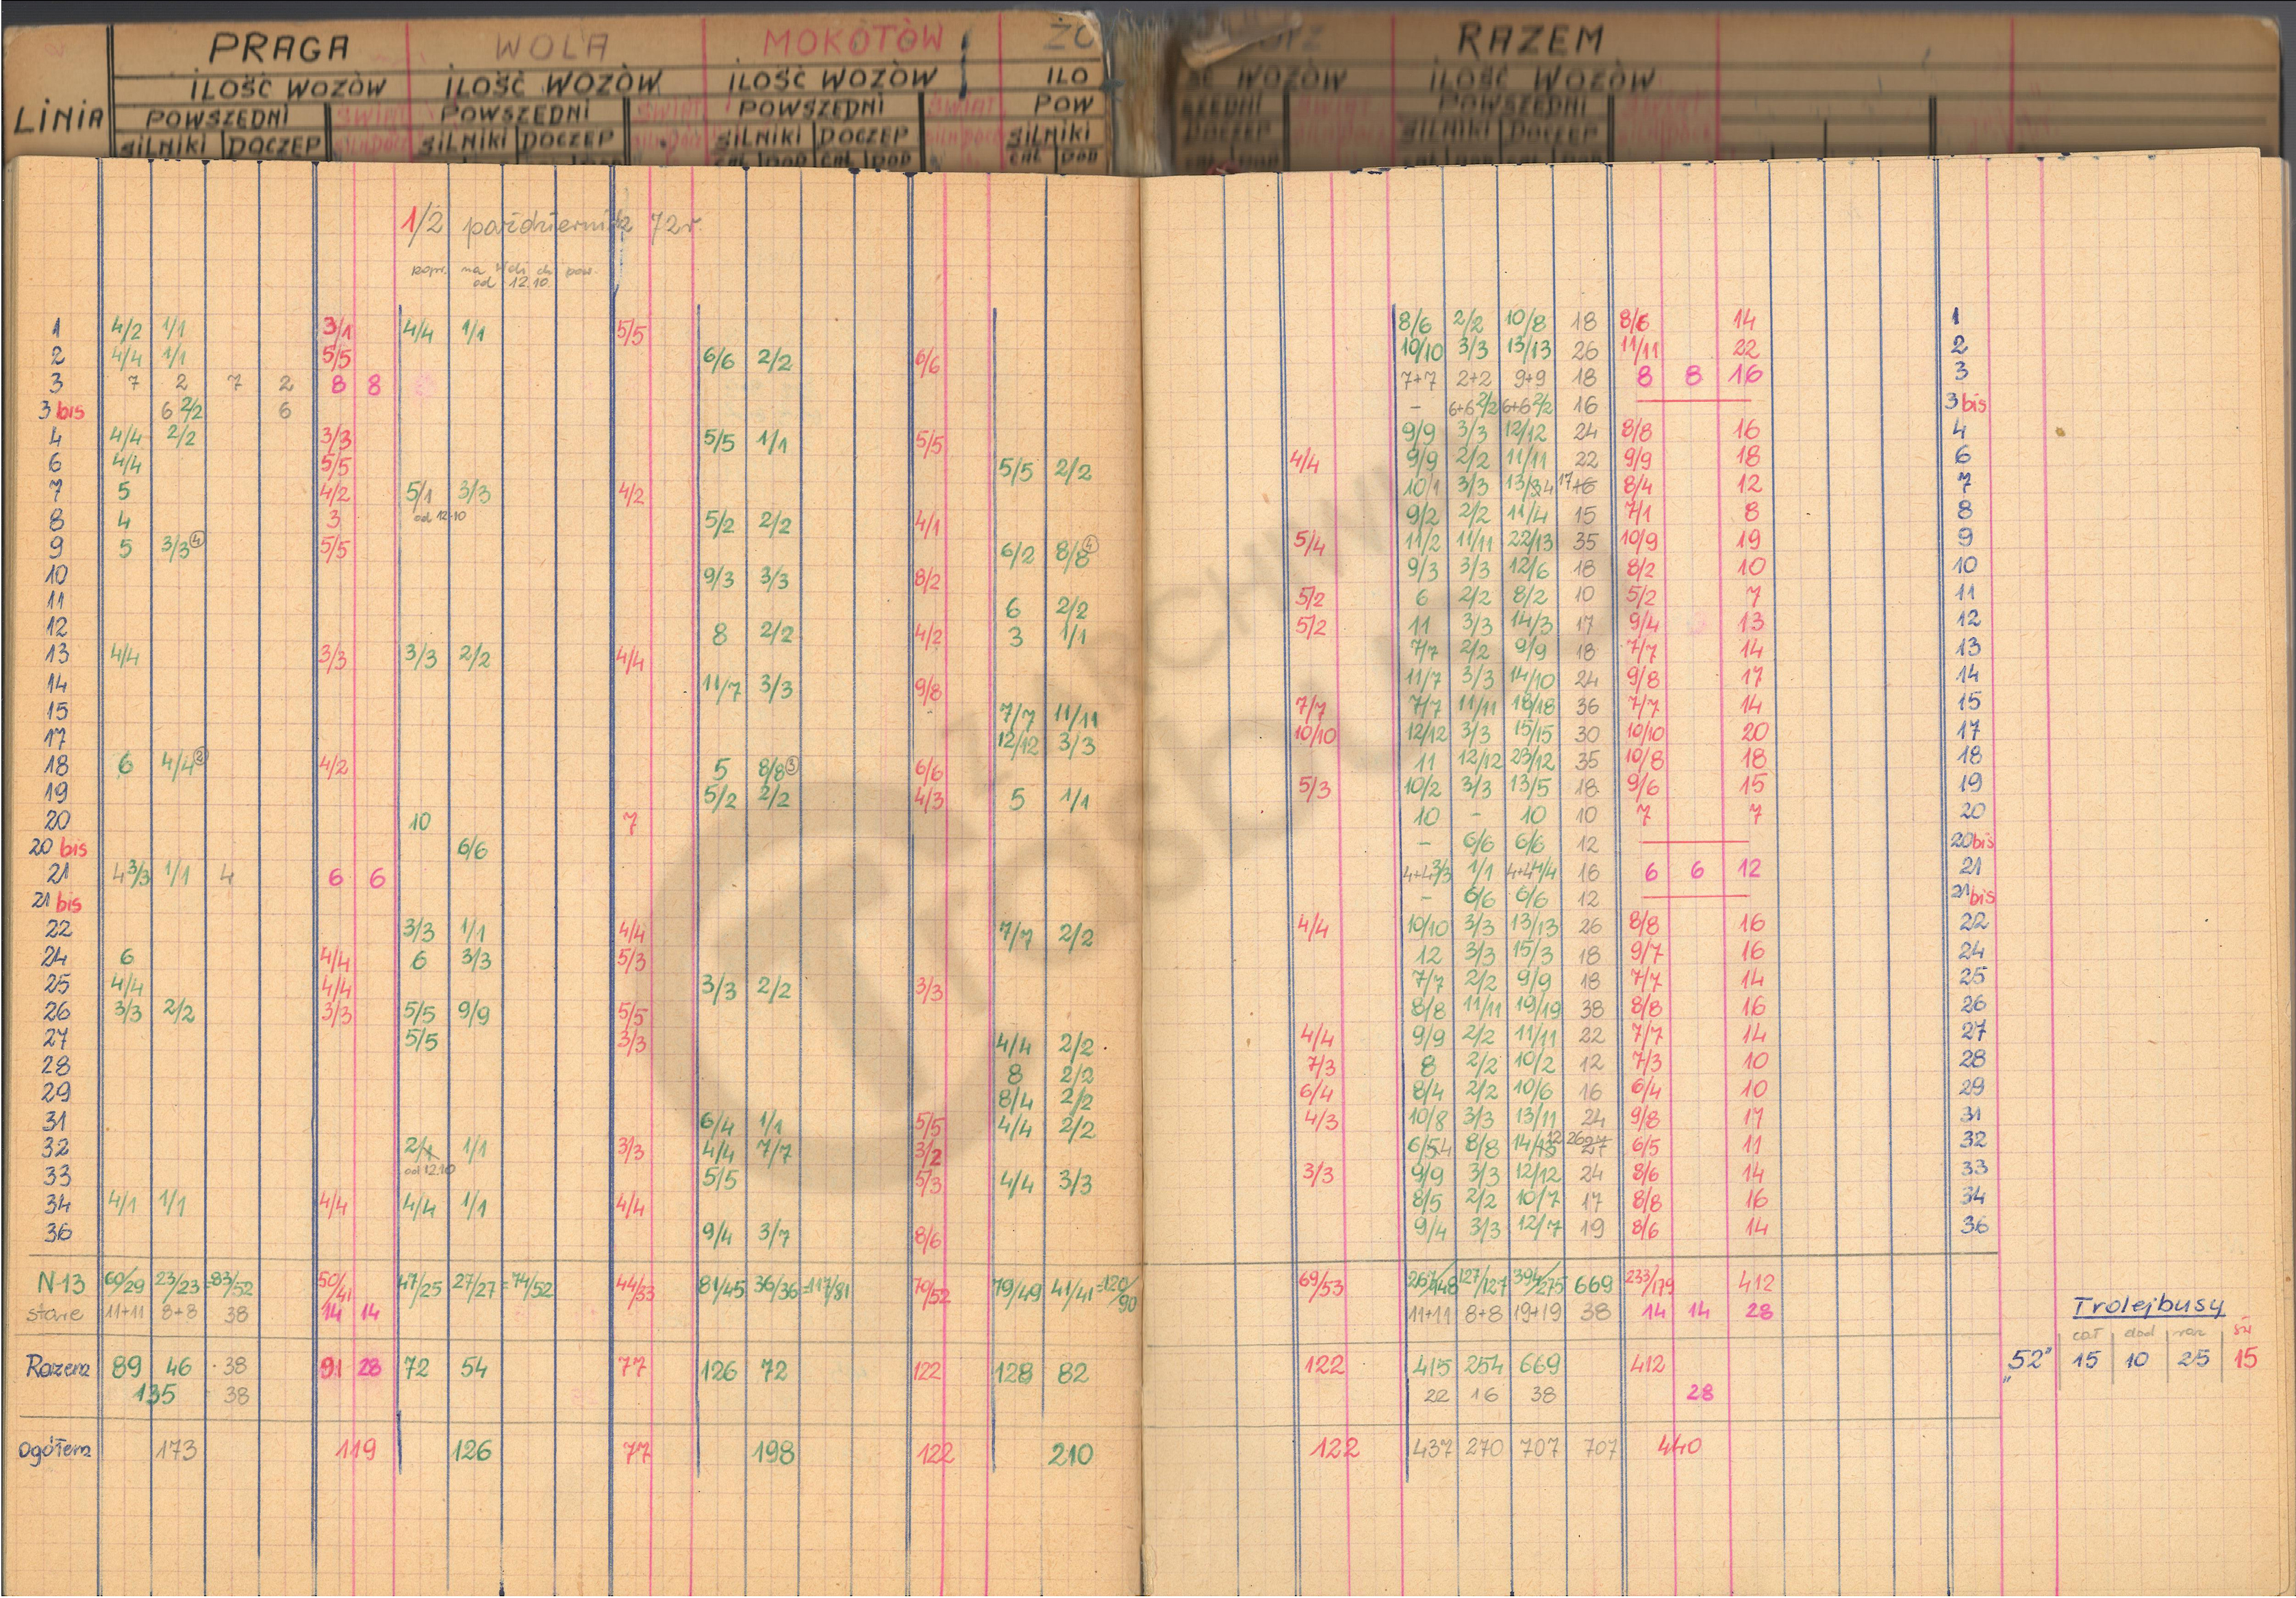 PRAGA WOLA MOKOTÓW ŻO RAZEM
ILOŚĆ WOZÓW ILOŚĆ WOZÓW ILOŚĆ WOZÓW ILO ŚĆ WOZÓW ILOŚĆ WOZÓW
LINIA POWSZEDNI ŚWIĄT POWSZEDNI ŚWIĄT POWSZEDNI ŚWIĄT POW SZEDNI ŚWIĄT POWSZEDNI ŚWIĄT
SILNIKI DOCZEP SILNIKI DOCZEP SILNIKI DOCZEP SILNIKI DOCZEP SILNIKI DOCZEP
CAŁ DOD CAŁ DOD CAŁ DOD
1/2 październik 72r.
od 12.10
1 4/2 1/1 3/1 4/4 1/1 5/5 8/6 2/2 10/8 18 8/6 14 1
2 4/4 1/1 5/5 6/6 2/2 6/6 10/10 3/3 13/13 26 11/11 22 2
3 7 2 7 2 8 8 7+7 2+2 9+9 18 8 8 16 3
3 bis 6 2/2 6 - 6+6 2/2 6+6 2/2 16 3 bis
4 4/4 2/2 3/3 5/5 1/1 5/5 9/9 3/3 12/12 24 8/8 16 4
6 4/4 5/5 5/5 2/2 4/4 9/9 2/2 11/11 22 9/9 18 6
7 5 4/2 5/1 3/3 4/2 10/1 3/3 13/3 4 17 16 8/4 12 7
od 12.10
8 4 3 5/2 2/2 4/1 9/2 2/2 11/4 15 7/1 8 8
9 5 3/3 4 5/5 6/2 8/8 4 5/4 11/2 11/11 22/13 35 10/9 19 9
10 9/3 3/3 8/2 9/3 3/3 12/6 18 8/2 10 10
11 6 2/2 5/2 6 2/2 8/2 10 5/2 7 11
12 8 2/2 4/2 3 1/1 5/2 11 3/3 14/3 17 9/4 13 12
13 4/4 3/3 3/3 2/2 4/4 7/7 2/2 9/9 18 7/7 14 13
14 11/7 3/3 9/8 11/7 3/3 14/10 24 9/8 17 14
15 - 7/7 11/11 7/7 7/7 11/11 18/18 36 7/7 14 15
17 12/12 3/3 10/10 12/12 3/3 15/15 30 10/10 20 17
18 6 4/4 2 4/2 5 8/8 3 6/6 11 12/12 23/12 35 10/8 18 18
19 5/2 2/2 4/3 5 1/1 5/3 10/2 3/3 13/5 18 9/6 15 19
20 10 7 10 - 10 10 7 7 20
20 bis 6/6 - 6/6 6/6 12 20 bis
21 4 3/3 1/1 4 6 6 4+4 3/3 1/1 4+4 4/4 16 6 6 12 21
21 bis - 6/6 6/6 12 21 bis
22 3/3 1/1 4/4 7/7 2/2 4/4 10/10 3/3 13/13 26 8/8 16 22
24 6 4/4 6 3/3 5/3 12 3/3 15/3 18 9/7 16 24
25 4/4 4/4 3/3 2/2 3/3 7/7 2/2 9/9 18 7/7 14 25
26 3/3 2/2 3/3 5/5 9/9 5/5 8/8 11/11 19/19 38 8/8 16 26
27 5/5 3/3 4/4 2/2 4/4 9/9 2/2 11/11 22 7/7 14 27
28 8 2/2 7/3 8 2/2 10/2 12 7/3 10 28
29 8/4 2/2 6/4 8/4 2/2 10/6 16 6/4 10 29
31 6/4 1/1 5/5 4/4 2/2 4/3 10/8 3/3 13/11 24 9/8 17 31
32 2/1 1/1 3/3 4/4 7/7 3/2 6/5 4 8/8 14/13 12 26 27 6/5 11 32
od 12.10
33 5/5 5/3 4/4 3/3 3/3 9/9 3/3 12/12 24 8/6 14 33
34 4/1 1/1 4/4 4/4 1/1 4/4 8/5 2/2 10/7 17 8/8 16 34
36 9/4 3/7 8/6 9/4 3/3 12/7 19 8/6 14 36
N-13 60/29 23/23 =83/52 50/41 47/25 27/27 =74/52 44/33 81/45 36/36 =117/81 70/52 79/49 41/41 =120/90 69/53 267/148 127/127 394/275 669 233/179 412
stare 11+11 8+8 38 14 14 11+11 8+8 19+19 38 14 14 28
Trolejbusy
cał dod raz św
Razem 89 46 38 91 28 72 54 77 126 72 122 128 82 122 415 254 669 412 „52" 15 10 25 15
135 38 22 16 38 28
Ogółem 173 119 126 77 198 122 210 122 437 270 707 707 440